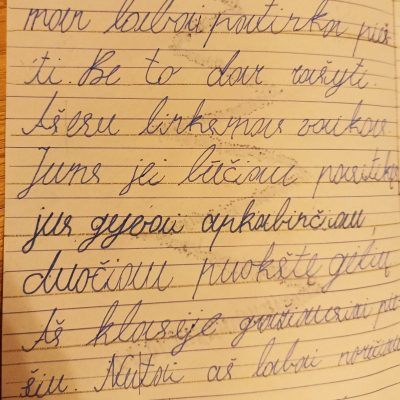 man labai patinka pie
ti. Be to dar rašyti.
Aš esu linksmas vaikas
Jums jei būčiau
jus gyvai apkabinčiau,
duočiau puokštę gėlių
Aš klasėje gražiausiai pie
šiu. Nutai aš labai norėčiau